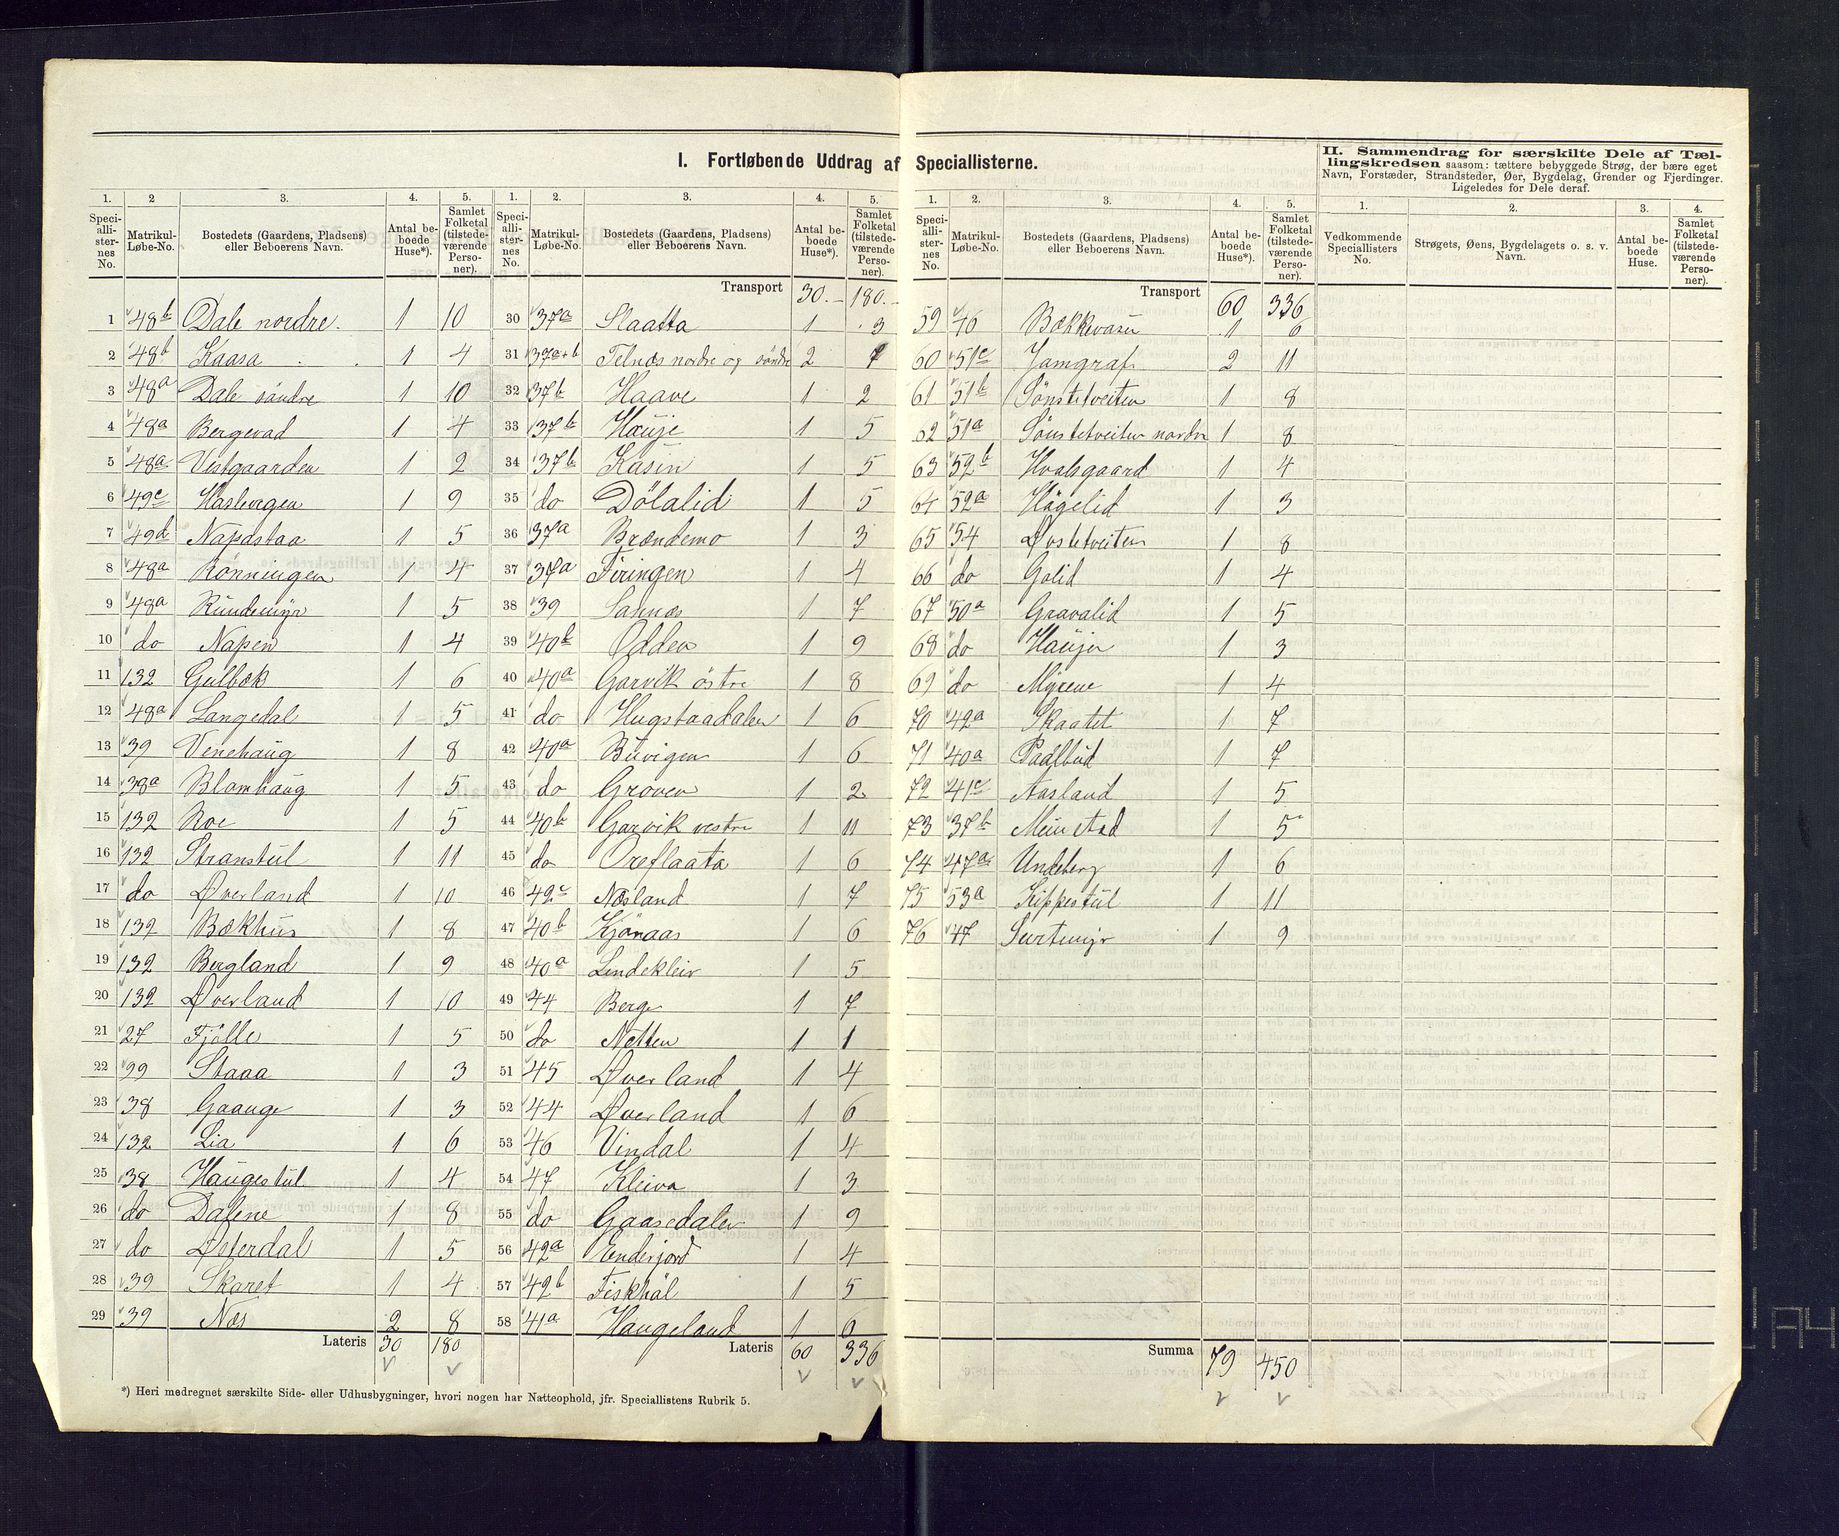 I. Fortløbende Uddrag af Speciallisterne.
II. Sammendrag for særskilte Dele af Tællingskredsen saasom: tættere bebyggede Strøg, der bære eget Navn, Forstæder, Strandsteder, Øer, Bygdelag, Grender og Fjerdinger. Ligeledes for Dele deraf.
1. 2 3. 4. 5.
Speciallisternes No. Matrikul-Løbe-No. Bostedets (Gaardens, Pladsens) eller Beboerens Navn. Antal beboede Huse*). Samlet Folketal (tilstedeværende Personer).
1 48b Dale nordre. 1 10
2 48b Kaasa 1 4
3 48a Dale søndre 1 10
4 48a Bergevad 1 4
5 48a Vestgaarden 1 2
6 49c Haslergen 1 9
7 49d Napdstaa 1 5
8 48a Rønningen 1 4
9 48a Rundemyr 1 5
10 do Napen 1 4
11 132 Gulbæk 1 6
12 48a Langedal 1 5
13 39 Venehaug 1 8
14 38a Blomhaug 1 5
15 132 Roe 1 5
16 132 Stranstul 1 11
17 do Øverland 1 10
18 132 Bækhus 1 8
19 132 Bergland 1 9
20 132 Øverland 1 10
21 27 Fjölle 1 5
22 99 Staaa 1 3
23 38 Gaauge 1 3
24 132 Lia 1 6
25 38 Haugestul 1 4
26 do Dalene 1 8
27 do Østerdal 1 5
28 39 Skaret 1 4
29 39 Næs 2 8
Lateris 30 180
1. 2. 3. 4. 5.
Speciallisternes No. Matrikul-Løbe-No. Bostedets (Gaardens, Pladsens) eller Beboerens Navn. Antal beboede Huse*). Samlet Folketal (tilstedeværende Personer).
Transport 30.- 180.-
30 37a Slaatta 1 3
31 37a+b Telnæs nordre og søndre 2 7
32 37b Haave 1 2
33 37b Hauje 1 5
34 37b Kasin 1 5
35 do Dölalid 1 5
36 37a Brændemo 1 3
37 37a Firingen 1 4
38 39 Sannæs 1 7
39 40b Odden 1 9
40 40a Garvik östre 1 8
41 do Hugstaadalen 1 6
42 40a Buvigen 1 6
43 do Groven 1 2
44 40b Garvik vestre 1 11
45 do Oreflaata 1 6
46 42c Næsland 1 7
47 40b Kjönaas 1 6
48 40a Lindekleiv 1 5
49 44 Berge 1 7
50 do Netten 1 1
51 45 Øverland 1 4
52 44 Øverland 1 6
53 46 Vindal 1 4
54 47 Kleiva 1 3
55 do Gaasedalen 1 9
56 42a Enderjord 1 4
57 42b Fiskhöl 1 5
58 41a Haugeland 1 6
Lateris 60 336
1. 2. 3. 4. 5.
Speciallisternes No. Matrikul-Løbe-No. Bostedets (Gaardens, Pladsens) eller Beboerens Navn. Antal beboede Huse*). Samlet Folketal (tilstedeværende Personer).
Transport 60 336
59 46 Bækkevarn 1 6
60 51c Jamgraf 2 11
61 51b Sönstetveiten 1 8
62 51a Sönstetveiten nordre 1 8
63 52b Hvalsgaard 1 4
64 52a Hägelid 1 3
65 54 Østetveiten 1 8
66 do Golid 1 4
67 50a Gravalid 1 5
68 do Haujer 1 3
69 do Myrene 1 4
70 42a Skaatet 1 7
71 40a Paalbud 1 7
72 41c Aasland 1 5
73 37b Meinstad 1 5
74 47a Undeberg 1 6
75 53a Kippestul 1 11
76 47 Surtemyr 1 9
Summa 79 450
1. 2. 3. 4.
Vedkommende Speciallisters No. Strøgets, Øens, Bygdelagets o. s. v. Navn. Antal beboede Huse. Samlet Folketal (tilstedeværende Personer).
*) Heri medregnet særskilte Side- eller Udhusbygninger, hvori nogen har Natteophold, jfr. Speciallistens Rubrik 5.